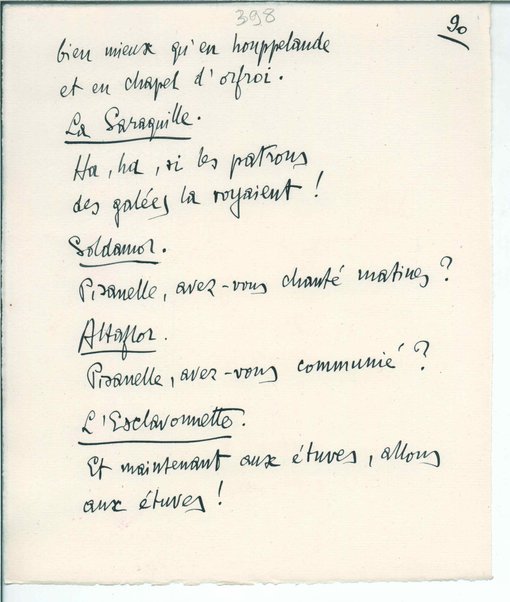 398
90
bien mieux qu'en houppelande
et en chapel d'orfroi.
La Saraquille.
Ha, ha, si les patrons
des galées la voyaient !
Soldamor.
Pisanelle, avez-vous chanté matines ?
Altaflor.
Pisanelle, avez-vous communié ?
L'Esclavonnette.
Et maintenant aux étuves, allons
aux étuves !